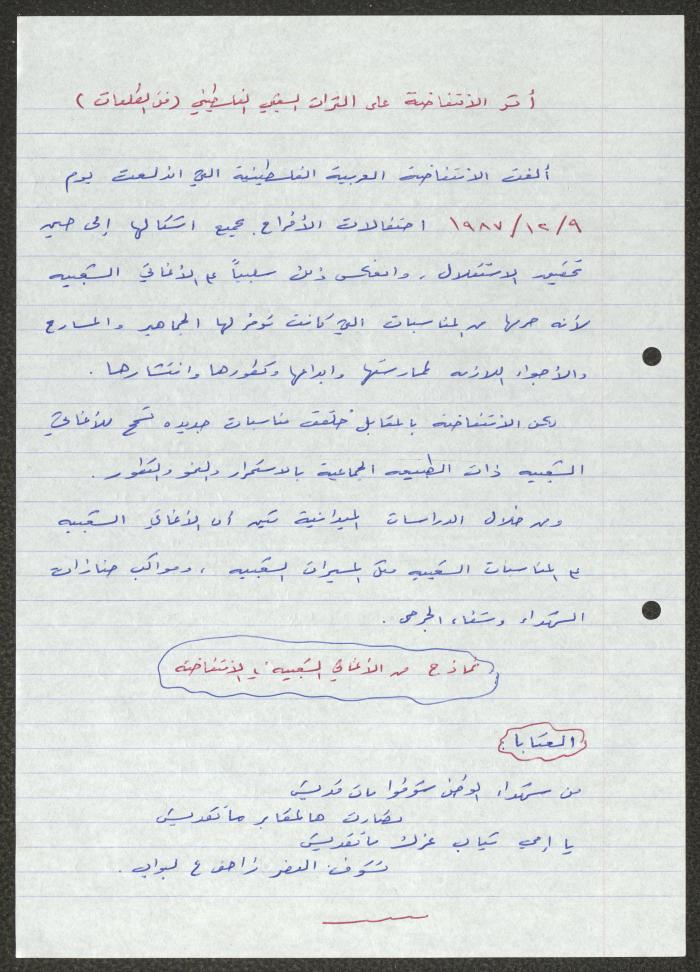 أثر الانتفاضة على التراث الشعبي الفلسطيني (فن الطلعات)
ألغت الانتفاضة العربية الفلسطينية التي اندلعت يوم
١٩٨٧/١٢/٩ احتفالات الأفراح بجميع اشكالها إلى حين
تحقيق الاستقلال، وانعكس ذلك سلبياً على الأغاني الشعبيه
لأنه حرمها من المناسبات التي كانت توفر لها الجماهير والمسارح
والأجواء اللازمه لممارستها وابداعها وتطورها وانتشارها.
ولكن الانتفاضة بالمقابل خلقت مناسبات جديده تسمح للأغاني
الشعبيه ذات الطبيعه الجماعية بالاستمرار والنمو والتطور.
ومن خلال الدراسات الميدانية تبين أن الأغاني الشعبيه
في المناسبات الشعبيه مثل المسيرات الشعبيه، ومواكب جنازات
الشهداء وشفاء الجرحى.
نماذج من الأغاني الشعبيه في الانتفاضة
العتابا:
من شهداء الوطن ستوفوا مات قديش
وصارت هالمقابر ما تقديش
يا إمي ثياب عزك ما تقديش
تشوف النصر زاحف ع لبواب.